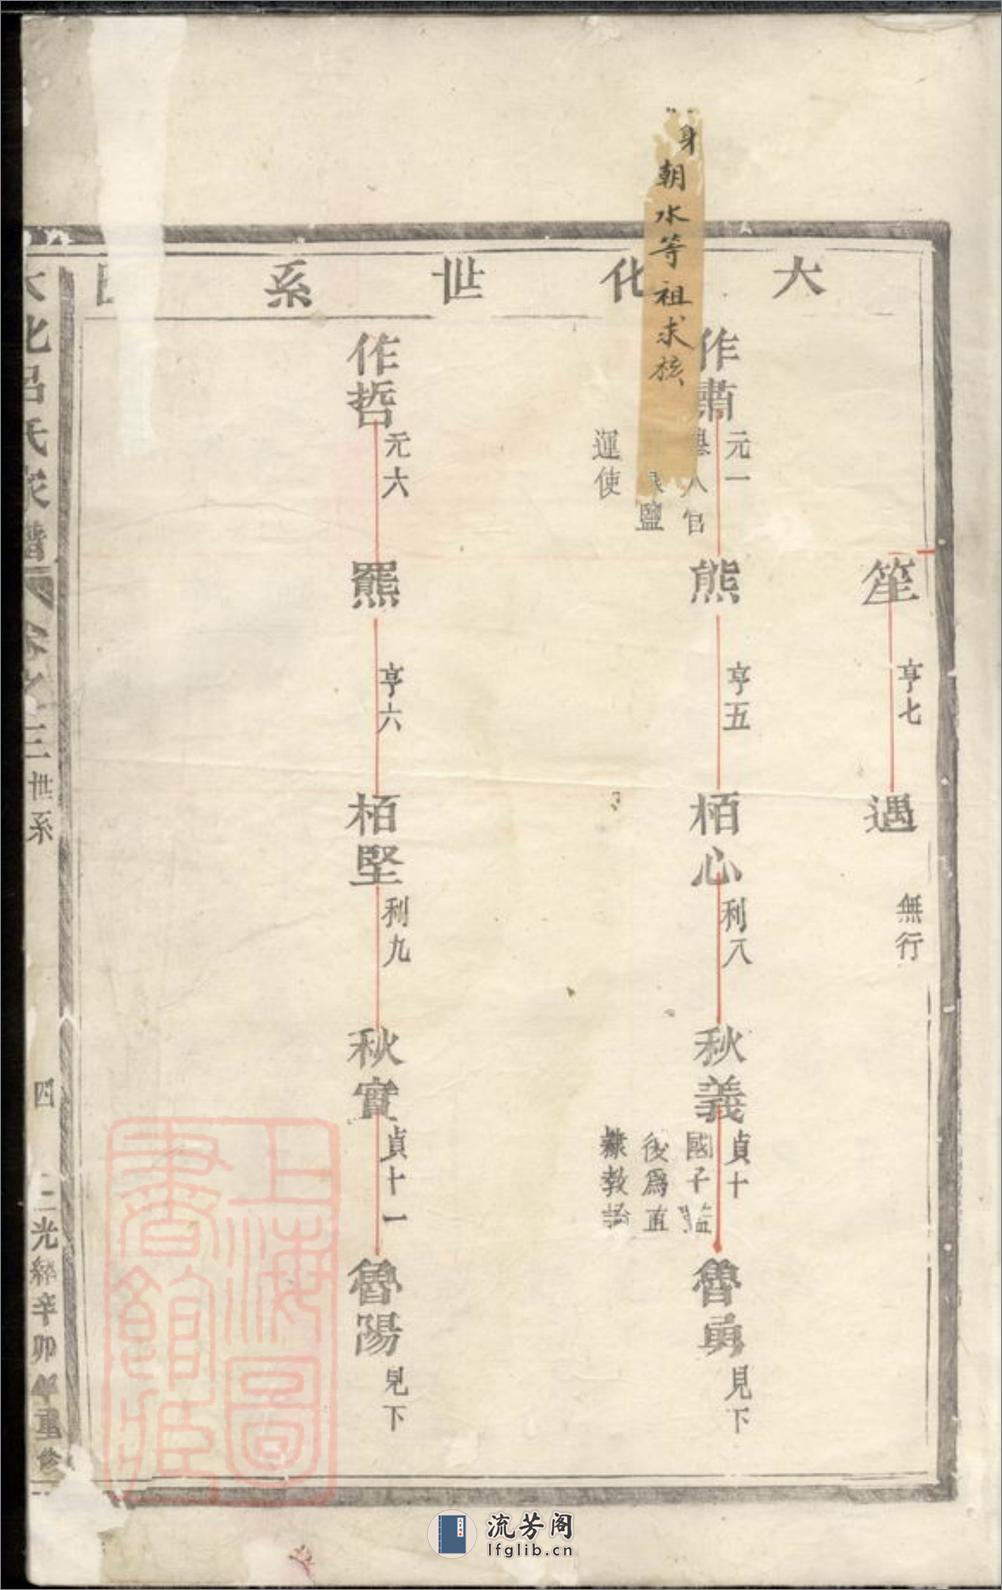 大化世系
笙 亨七
遇 無行
作肅 元一
人官
鹽
運使
熊 亨五
栢心 利八
秋義 貞十
國子監
後爲直
隸教諭
魯 見下
作哲 元六
羆 亨六
栢堅 利九
秋實 貞十一
魯陽 見下
身朝水等祖求核
化呂氏家譜 卷之三 世系 四 光緒辛卯年重修
上海圖書館藏
流芳阁
lfglib.cn